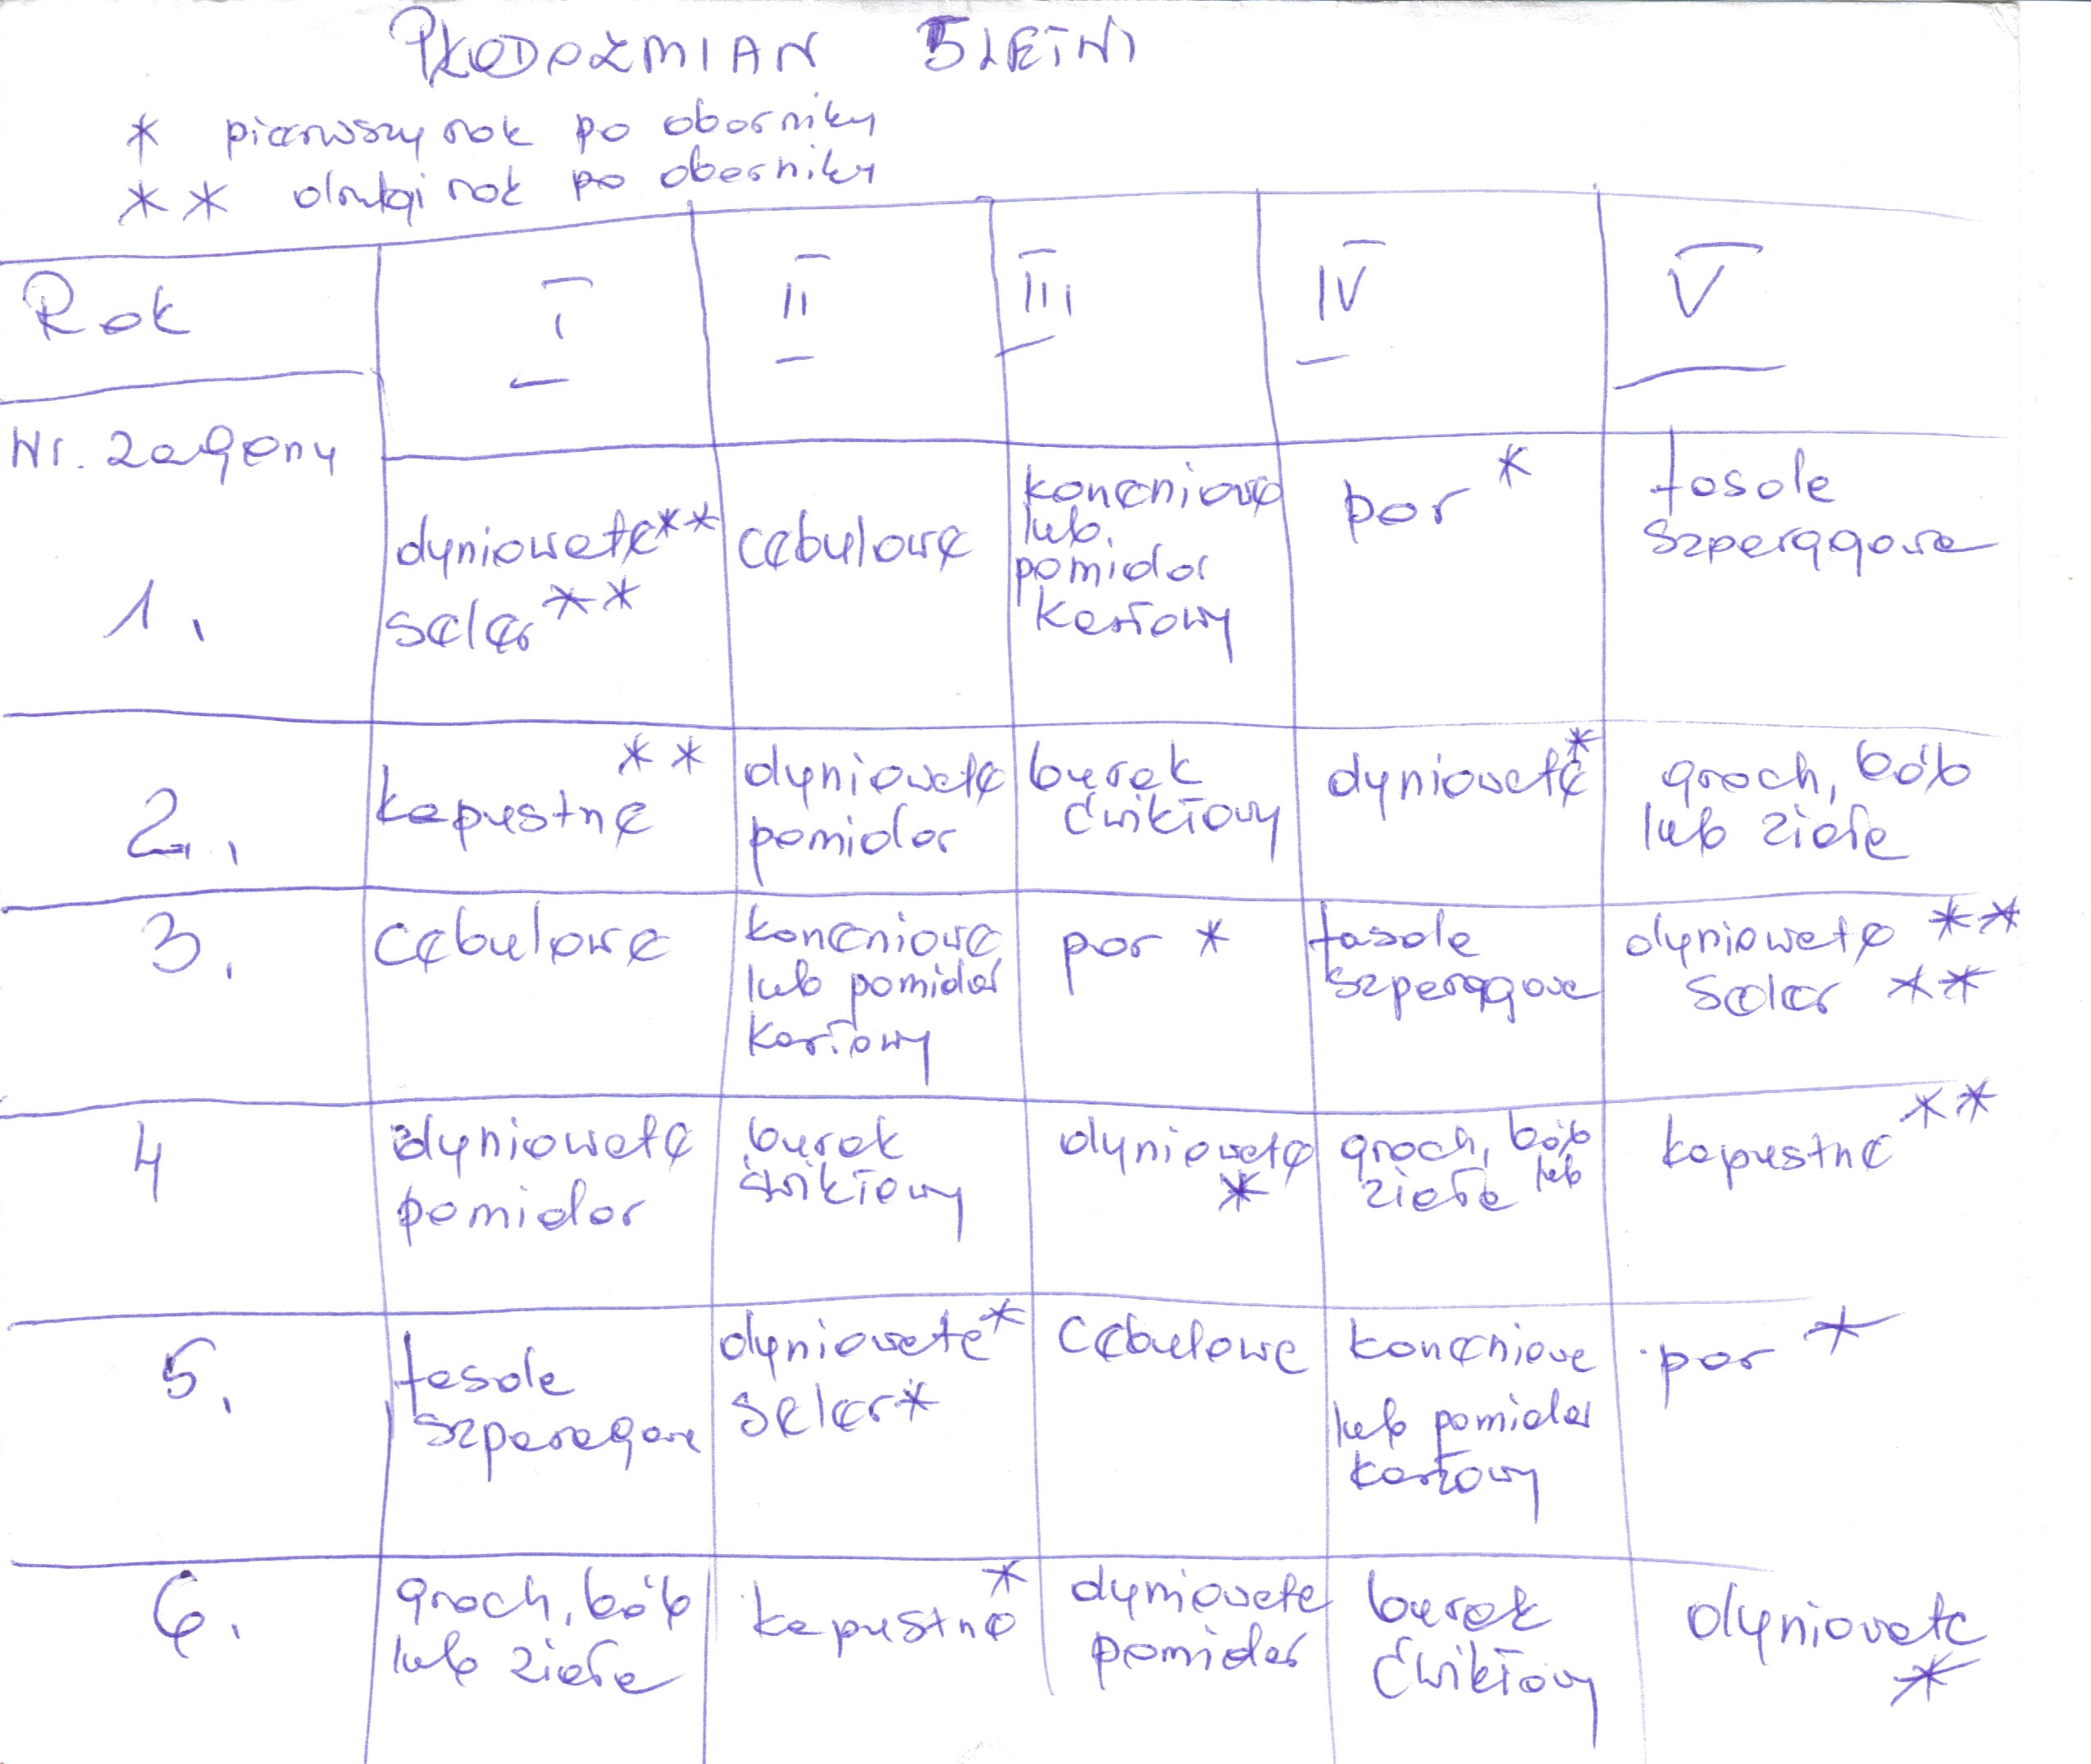 PŁODOZMIAN 5 LETNI
* pierwszy rok po oborniku
** drugi rok po oborniku
Rok I II III IV V
Nr. zagonu
1. dyniowate** seler** cebulowe korzeniowe lub pomidor karłowy por* fasola szparagowa
2. kapustne** dyniowate pomidor burak ćwikłowy dyniowate* groch, bób lub zioła
3. cebulowe korzeniowe lub pomidor karłowy por* fasola szparagowa dyniowate** seler**
4 dyniowate pomidor burak ćwikłowy dyniowate* groch, bób lub zioła kapustne**
5. fasola szparagowa dyniowate* seler* cebulowe korzeniowe lub pomidor karłowy por*
6. groch, bób lub zioła kapustne* dyniowate pomidor burak ćwikłowy dyniowate*